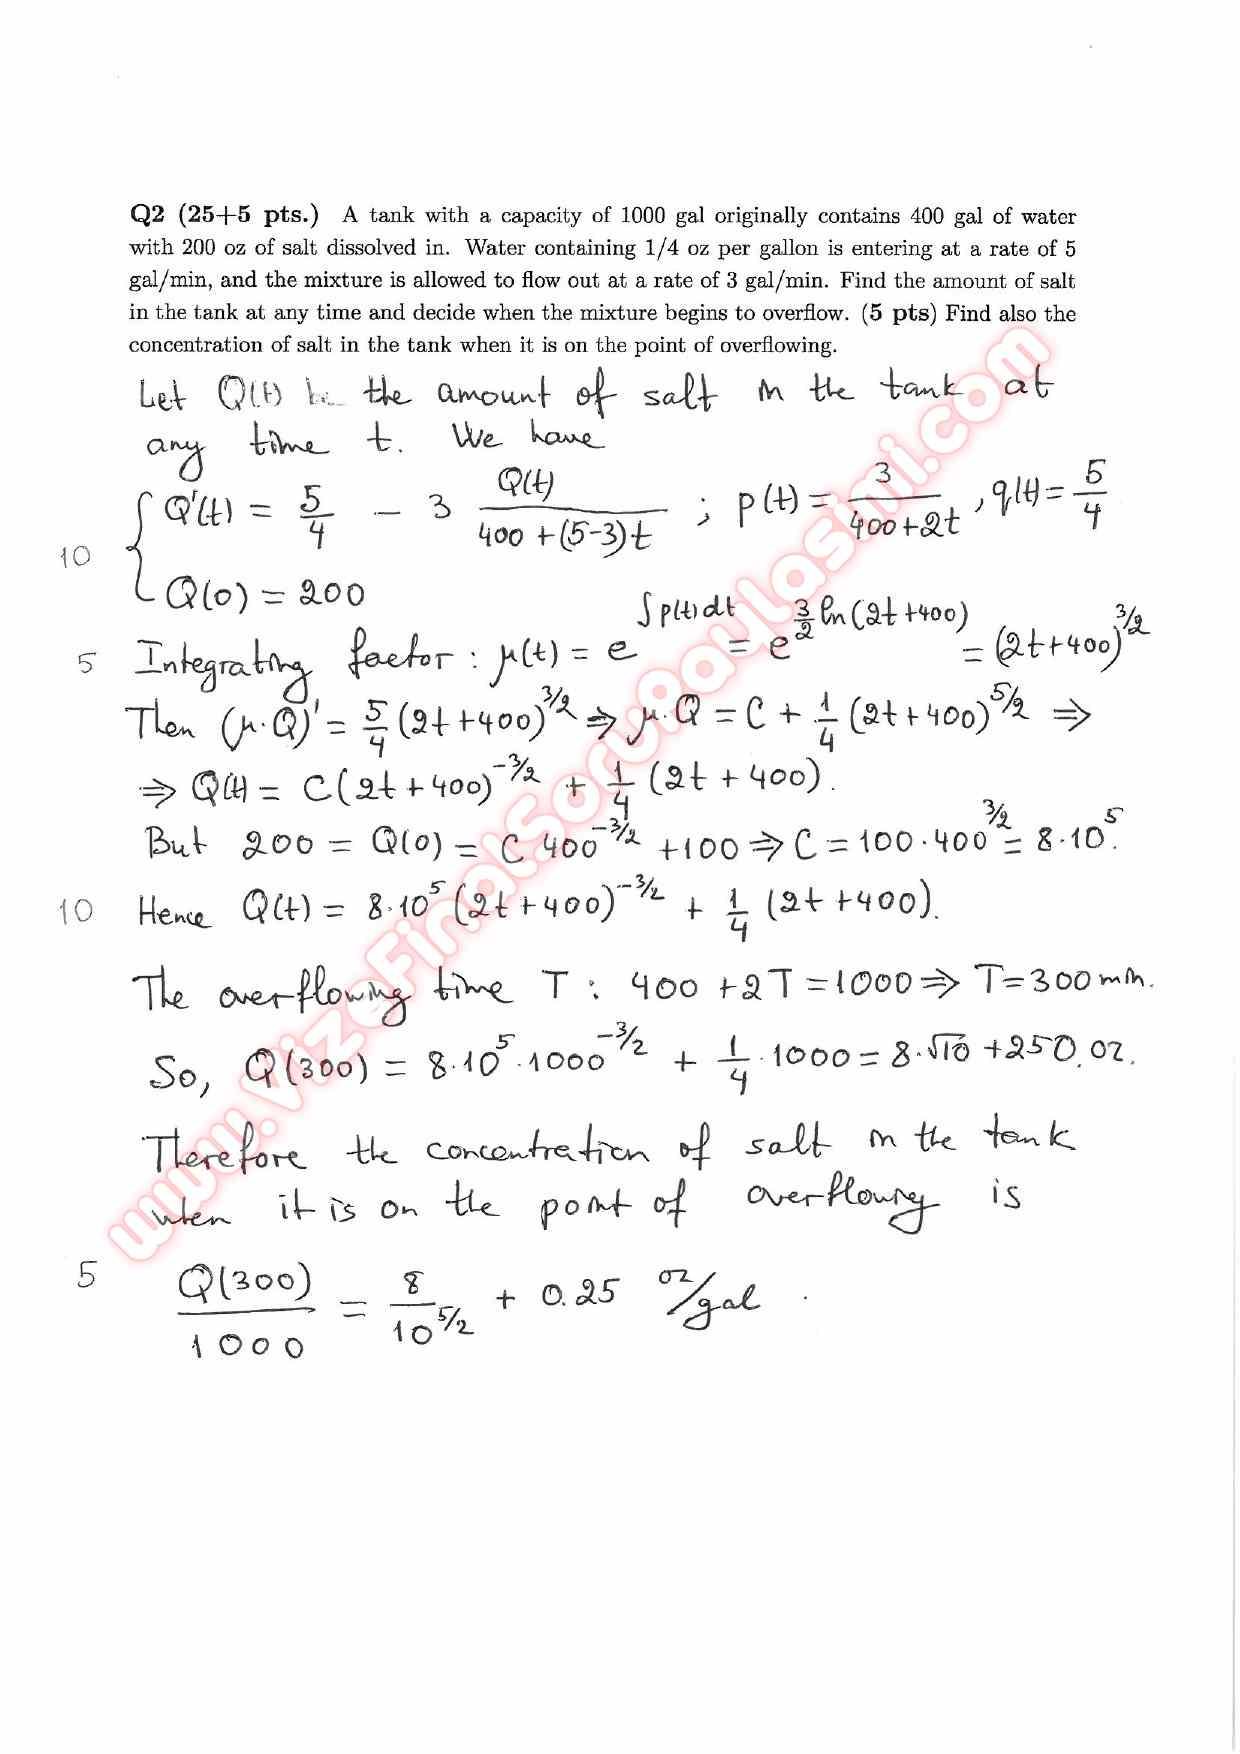 Q2 (25+5 pts.) A tank with a capacity of 1000 gal originally contains 400 gal of water
with 200 oz of salt dissolved in. Water containing 1/4 oz per gallon is entering at a rate of 5
gal/min, and the mixture is allowed to flow out at a rate of 3 gal/min. Find the amount of salt
in the tank at any time and decide when the mixture begins to overflow. (5 pts) Find also the
concentration of salt in the tank when it is on the point of overflowing.
Let Q(t) be the amount of salt in the tank at
any time t. We have
10 { Q'(t) = 5/4 - 3 Q(t)/(400+(5-3)t) ; p(t) = 3/(400+2t), q(t) = 5/4
Q(0) = 200
5 Integrating factor: μ(t) = e^{∫p(t)dt} = e^{3/2 ln(2t+400)} = (2t+400)^{3/2}
Then (μ·Q)' = 5/4 (2t+400)^{3/2} ⇒ μ·Q = C + 1/4 (2t+400)^{5/2} ⇒
⇒ Q(t) = C(2t+400)^{-3/2} + 1/4 (2t+400).
But 200 = Q(0) = C 400^{-3/2} +100 ⇒ C = 100·400^{3/2} = 8·10^5.
10 Hence Q(t) = 8·10^5 (2t+400)^{-3/2} + 1/4 (2t+400).
The overflowing time T: 400 +2T = 1000 ⇒ T = 300 min.
So, Q(300) = 8·10^5·1000^{-3/2} + 1/4·1000 = 8·√10 +250 oz.
Therefore the concentration of salt in the tank
when it is on the point of overflowing is
5 Q(300)/1000 = 8/10^{5/2} + 0.25 oz/gal.
www.VizeFinalSoruPaylasimi.com